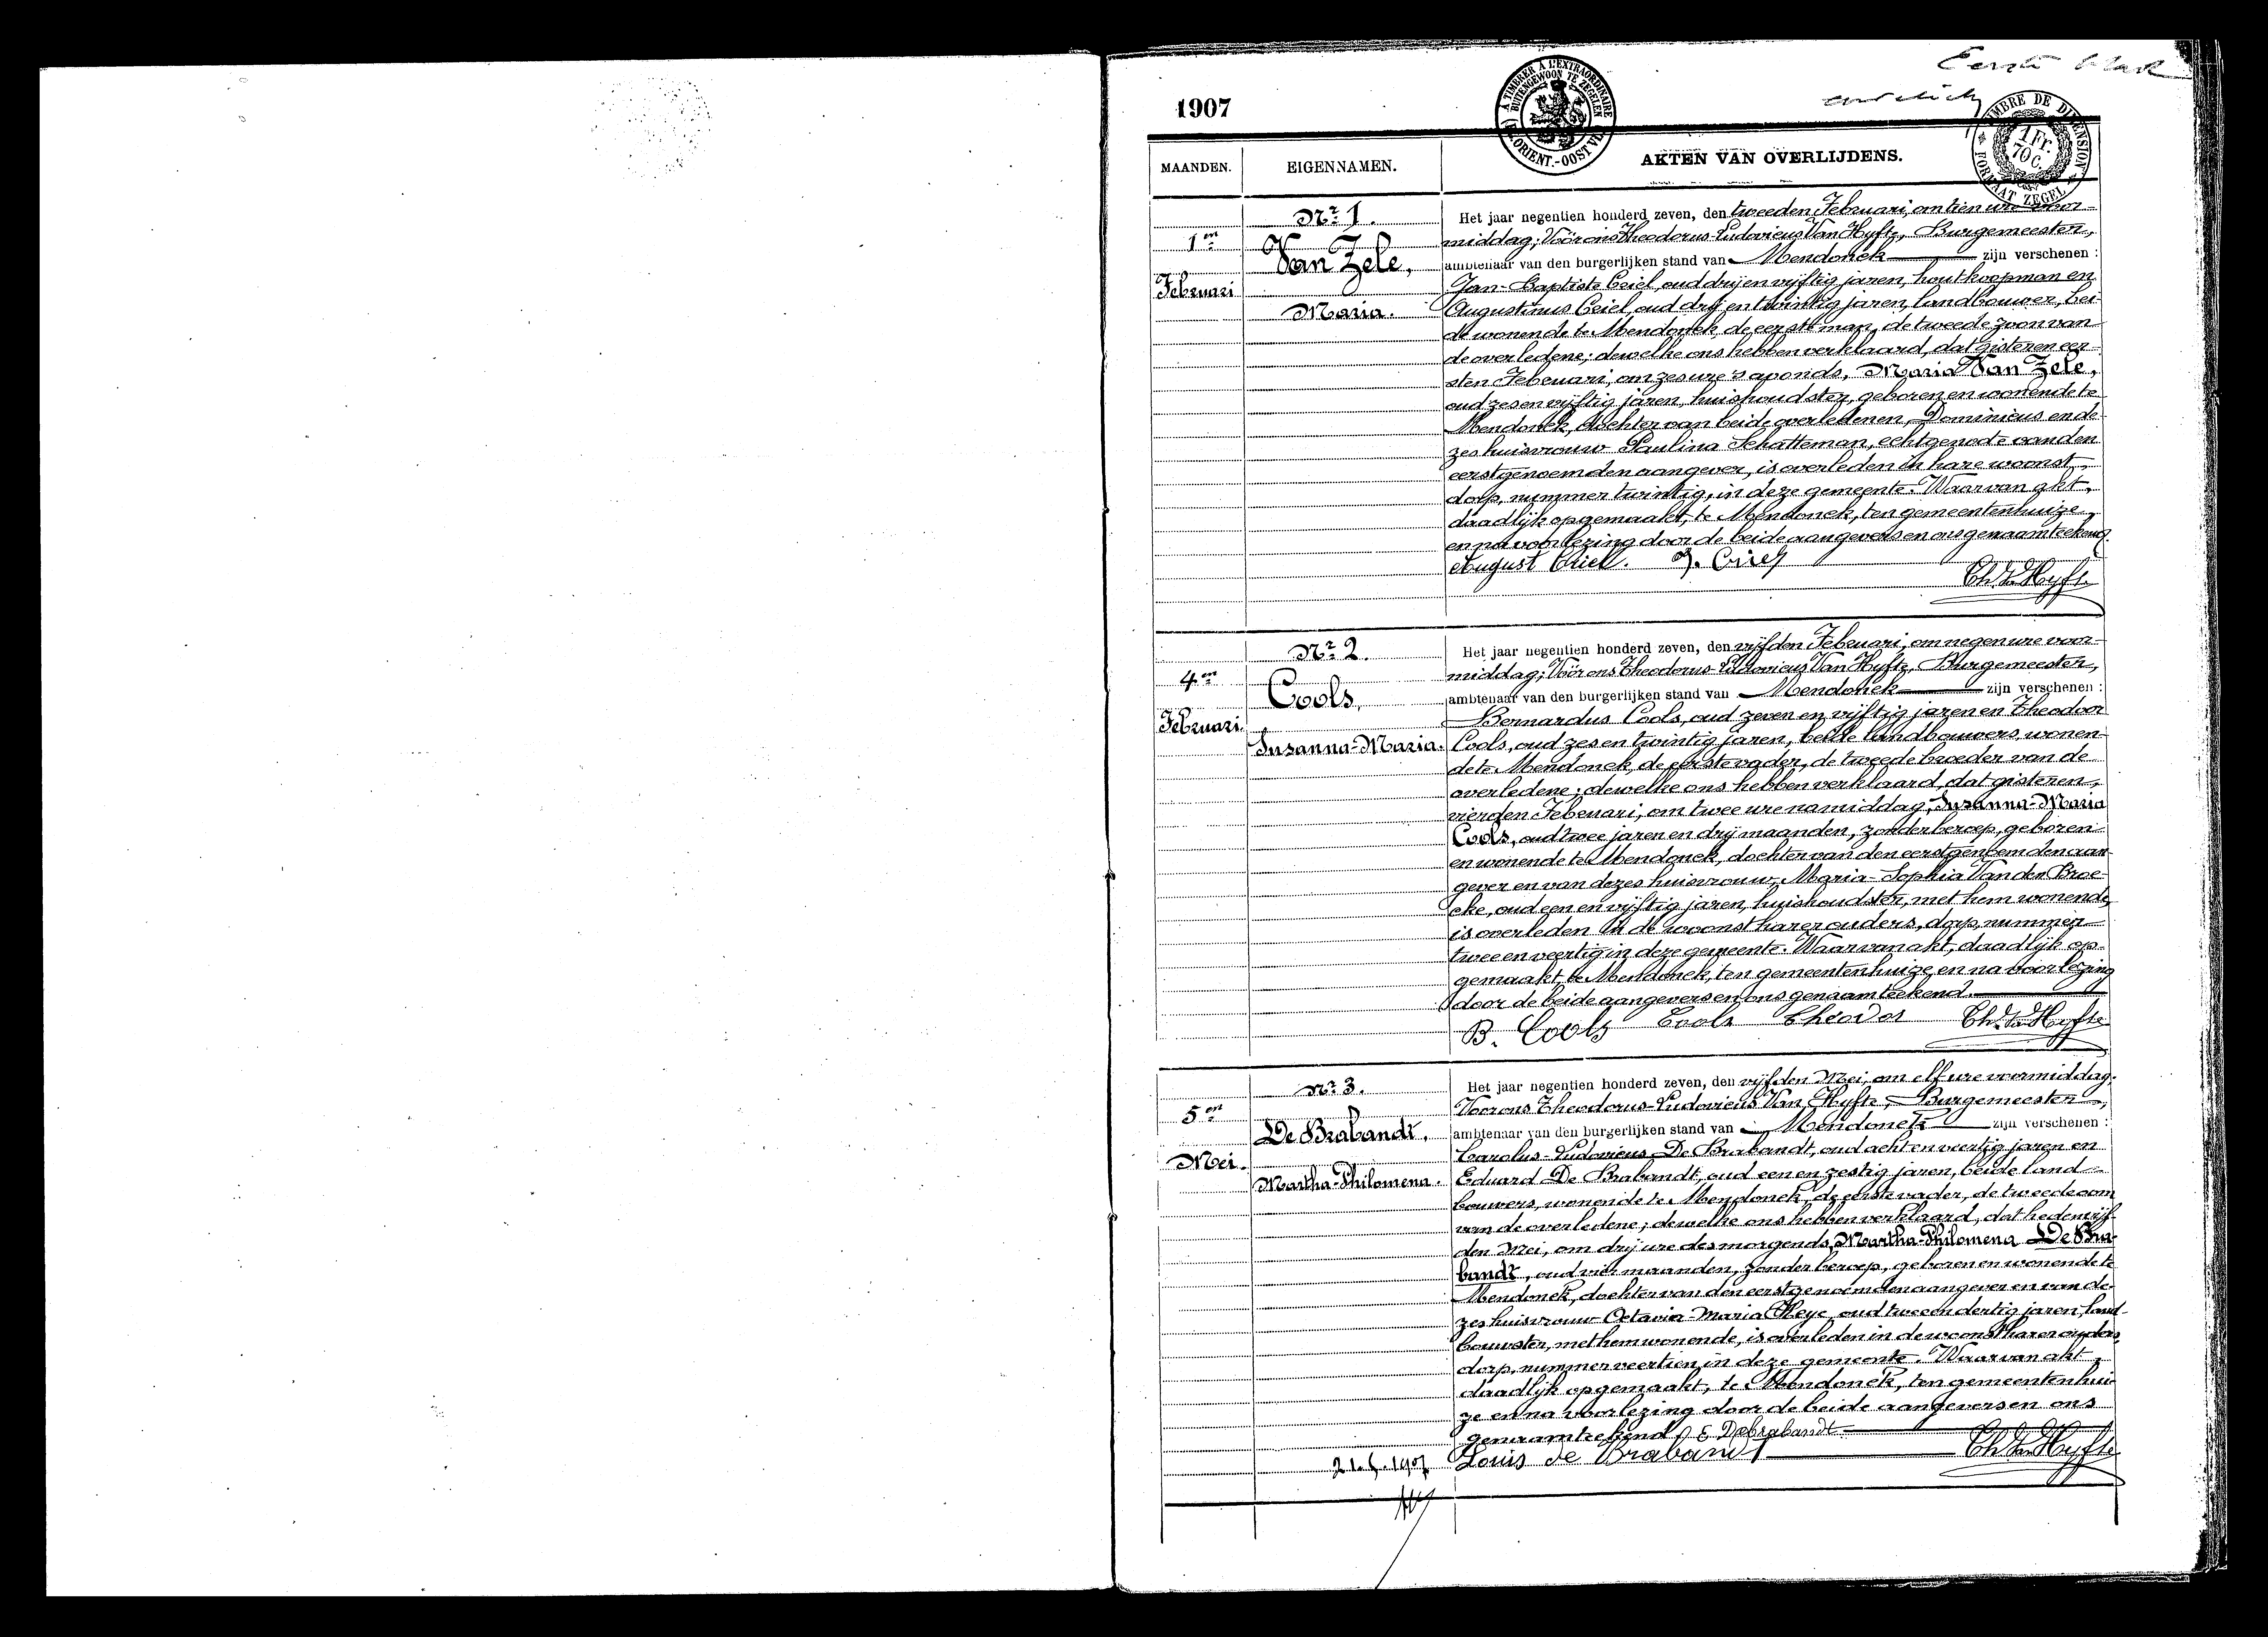 Eerste blad
1907
A TIMBRER A L'EXTRAORDINAIRE
BUITENGEWOON TE ZEGELEN
FL. ORIENT.-OOST VL.
TIMBRE DE DIMENSION
1 Fr. 70 C.
FORMAAT ZEGEL
MAANDEN.
EIGENNAMEN.
AKTEN VAN OVERLIJDENS.
1en
Februari
Nr 1.
Van Zele,
Maria.
Het jaar negentien honderd zeven, den tweeden Februari, om tien ure voor-
middag; Vóór ons Theodorus-Ludovicus Van Hyfte, Burgemeester,
ambtenaar van den burgerlijken stand van Mendonck zijn verschenen :
Jan-Baptiste Criel, oud drij en vijftig jaren, houtkoopman en
Augustinus Criel, oud drij en twintig jaren, landbouwer, bei-
de wonende te Mendonck, de eerste man, de tweede zoon van
de overledene; dewelke ons hebben verklaard, dat gisteren eer-
sten Februari, om zes ure 's avonds, Maria Van Zele,
oud zes en vijftig jaren, huishoudster, geboren en wonende te
Mendonck, dochter van beide overledenen, Dominicus en de-
zes huisvrouw Paulina Schatteman, echtgenote van den
eerstgenoemden aangever, is overleden in hare woonst,
dorp, nummer twintig, in deze gemeente. Waarvan akt,
daadlijk opgemaakt, te Mendonck, ten gemeentenhuize,
en na voorlezing door de beide aangevers en ons genaamteekend.
August Criel. J. Criel
Th. Van Hyfte
4en
Februari.
Nr 2.
Cools,
Suzanna-Maria.
Het jaar negentien honderd zeven, den vijfden Februari, om negen ure voor-
middag; Vóór ons Theodorus-Ludovicus Van Hyfte, Burgemeester,
ambtenaar van den burgerlijken stand van Mendonck zijn verschenen :
Bernardus Cools, oud zeven en vijftig jaren en Theodoor
Cools, oud zes en twintig jaren, beide landbouwers, wonen-
de te Mendonck, de eerste vader, de tweede broeder van de
overledene; dewelke ons hebben verklaard, dat gisteren,
vierden Februari, om twee ure namiddag, Suzanna-Maria
Cools, oud twee jaren en drij maanden, zonder beroep, geboren
en wonende te Mendonck, dochter van den eerstgenoemden aan-
gever en van dezes huisvrouw, Maria-Sophia Van den Broe-
cke, oud een en vijftig jaren, huishoudster, met hem wonende,
is overleden in de woonst harer ouders, dorp, nummer
twee en veertig in deze gemeente. Waarvan akt, daadlijk op-
gemaakt, te Mendonck, ten gemeentenhuize, en na voorlezing
door de beide aangevers en ons genaamteekend.
B. Cools Cools Theodor Th. Van Hyfte
5en
Mei.
Nr 3.
De Brabandt,
Martha-Philomena.
Het jaar negentien honderd zeven, den vijfden Mei, om elf ure voormiddag;
Voor ons Theodorus-Ludovicus Van Hyfte, Burgemeester,
ambtenaar van den burgerlijken stand van Mendonck zijn verschenen :
Carolus-Ludovicus De Brabandt, oud acht en veertig jaren en
Eduard De Brabandt, oud een en zestig jaren, beide land-
bouwers, wonende te Mendonck, de eerste vader, de tweede oom
van de overledene; dewelke ons hebben verklaard, dat heden vijf-
den Mei, om drij ure des morgends, Martha-Philomena De Bra-
bandt, oud vier maanden, zonder beroep, geboren en wonende te
Mendonck, dochter van den eerstgenoemden aangever en van de-
zes huisvrouw Octavia-Maria Heye, oud twee en dertig jaren, land-
bouwster, met hem wonende, is overleden in de woonst harer ouders,
dorp, nummer veertien, in deze gemeente. Waarvan akt,
daadlijk opgemaakt, te Mendonck, ten gemeentenhui-
ze en na voorlezing door de beide aangevers en ons
genaamteekend. E Debrabandt
Louis de Brabandt Th. Van Hyfte
21.5.1907